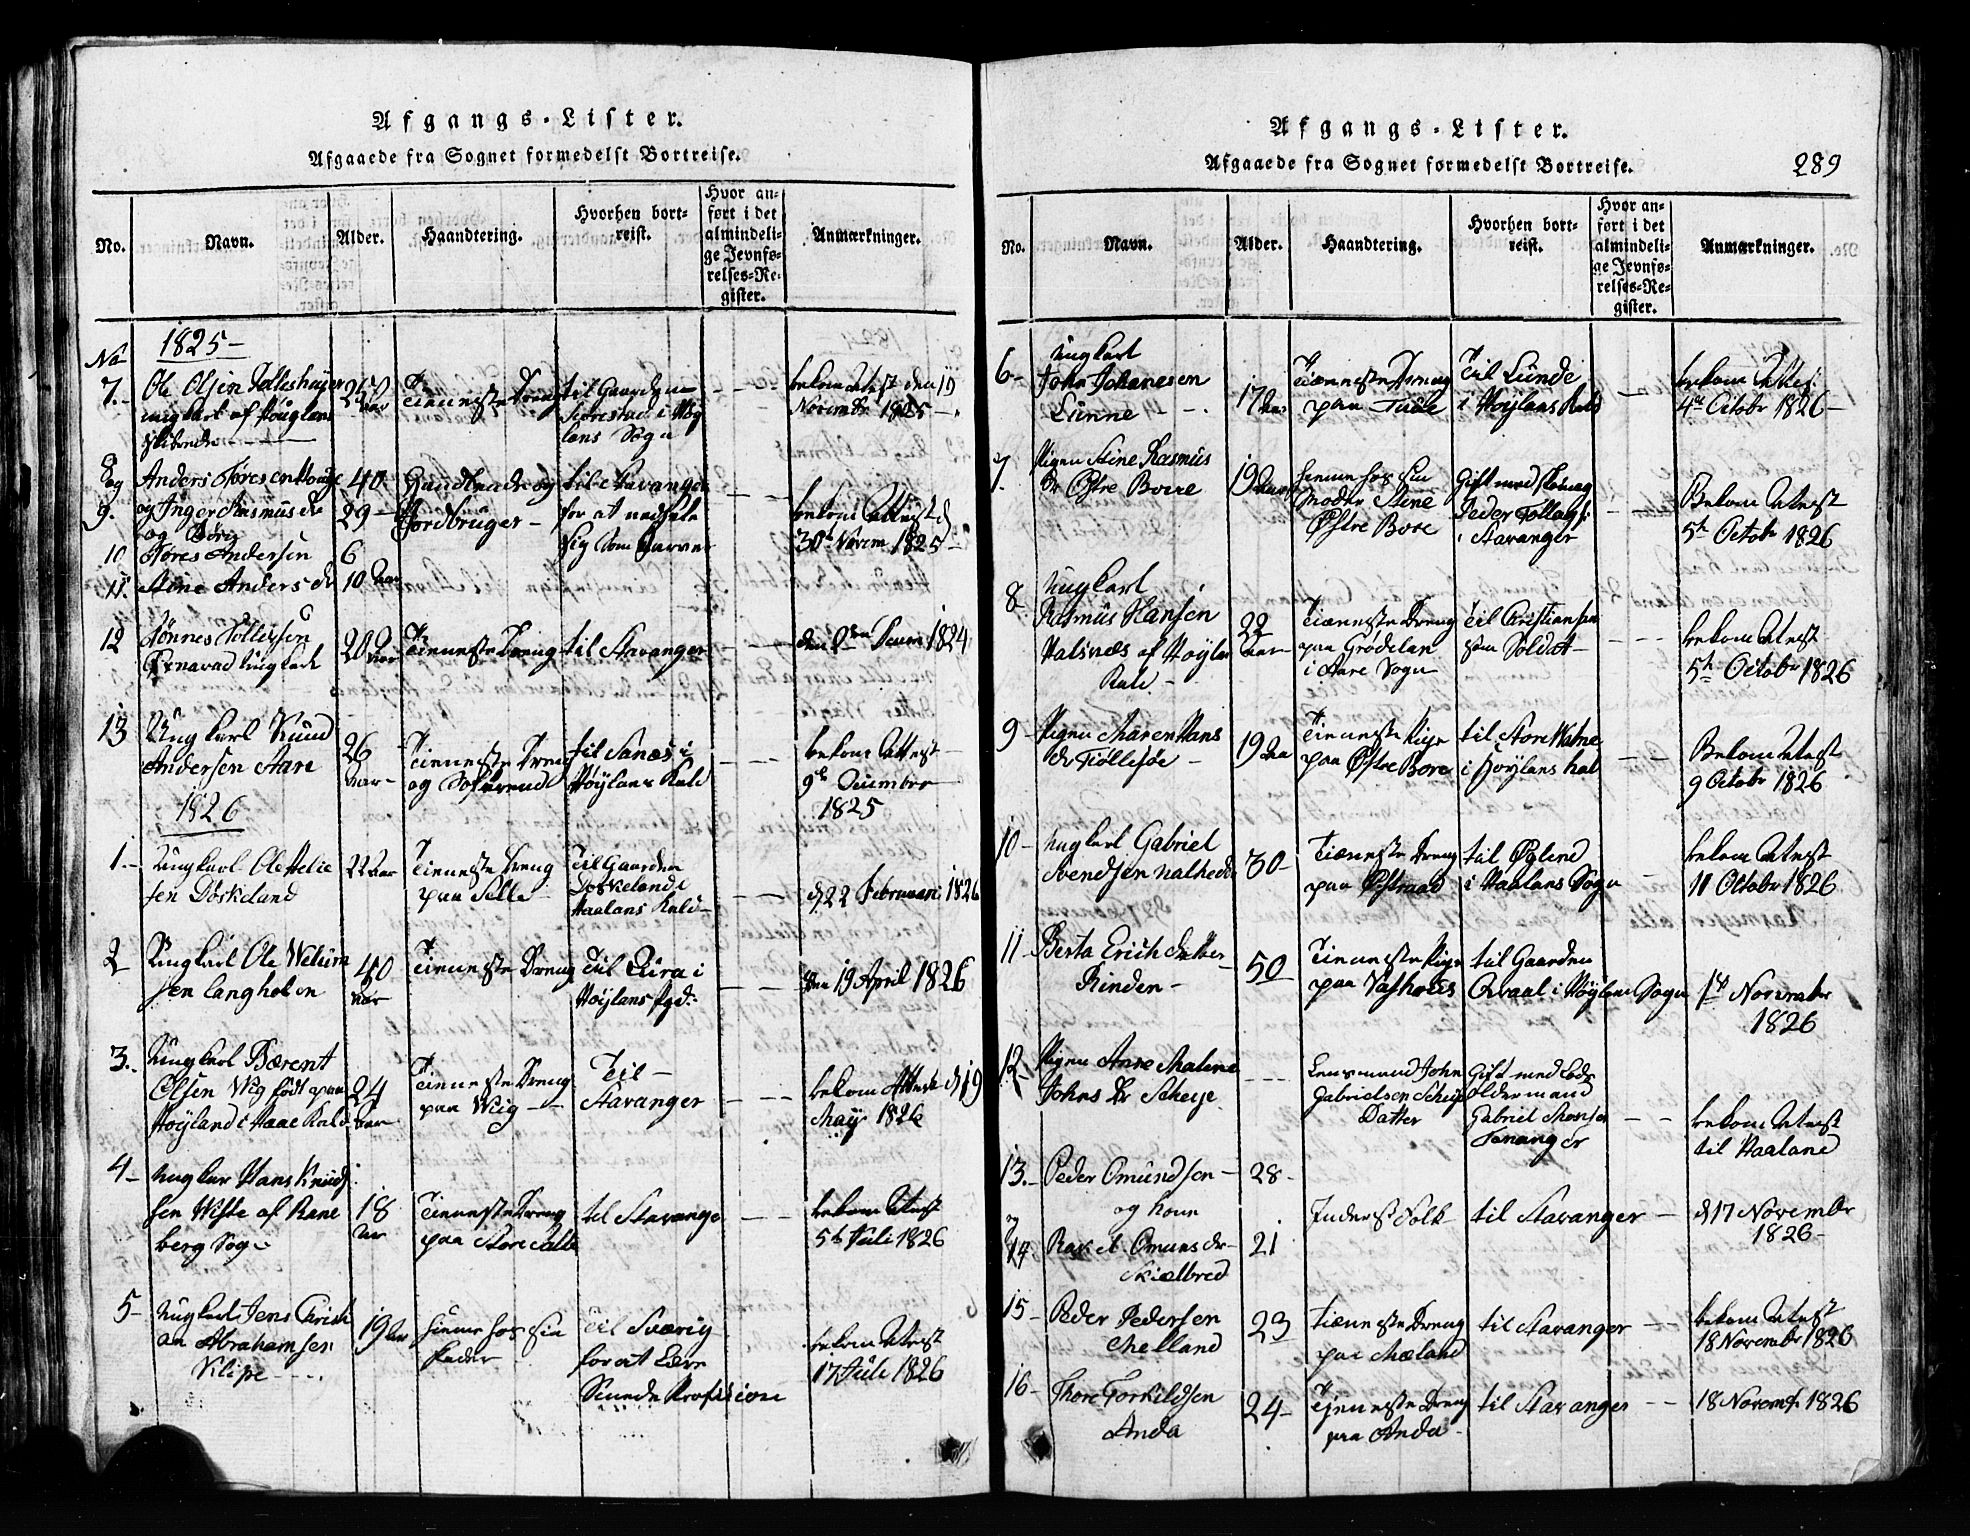 Afgangs-Lister.
Afgaaede fra Sognet formedelst Bortreise.
No.
Navn.
Alder.
Haandtering.
Hvorhen bort-
reist.
Hvor an-
ført i det
almindeli-
ge Jevnfø-
relses-Re-
gister.
Anmærkninger.
1825
No
7.
Ole Olsen
ungkarl af
Tienneste Dreng
til Gaarden
i Høy
lans Sogn
bekom Attest den 19
November 1825
8
og
9.
Anders Toresen
og Inger Rasmus dr
40
29
og
Jordbruger
til Stavanger
for at nedsette
sig som Garver
bekom Attest d
30te Novem 1825
10
Tores Andersen
6
11
Stine Anders dr
10 aar
12
Tønnes Tollevsen
ungkarl
20 aar
Tienneste Dreng
til Stavanger
1824
13
Ungkarl Knud
Andersen Aare
26
aar
Tienneste Dreng
og
til Sanes i
Høylans Kald
bekom Attest
9de December
1825
1826
1.
Ungkarl Ole Helie
sen Doskeland
22 aar
Tienneste Dreng
paa Selle
Til Gaarden
Doskeland i
Haalans Kald
d 22 Februari 1826
2
Ungkarl Ole
sen Langholen
40
aar
Tienneste Dreng
Til Lura i
Høylans Pgd:
den 19 April 1826
3.
Ungkarl Bærent
Olsen Wig født paa
Høyland i Haae Kald
24
aar
Tienneste Dreng
paa Wiig
Til
Stavanger
bekom Attest d 19
May 1826
4
Ungkar Hans Knud
sen Wiste af Rane
berg Sogn
18
aar
Tienneste Dreng
paa Store Salte
til Stavange
bekom Attest
5te Juli 1826
5
Ungkarl Jens Christi
an Abrahamsen
Klepe
19 aar
hiemme hos sin
Fader
Til Sværig
for at Lære
Smede Profision
bekom Attest
17 Juli 1826
Afgangs-Lister.
Afgaaede fra Sognet formedelst Bortreise.
289
No.
Navn.
Alder.
Haandtering.
Hvorhen bort-
reist.
Hvor an-
ført i det
almindeli-
ge Jevnfø-
relses-Re-
gister.
Anmærkninger.
6
Ungkarl
John Johanesen
Lunne
17 aar
Tienneste Dreng
paa Tiøte
Til Lunde
i Høylans Kald
bekom Attest
4de Octobr 1826
7.
Pigen Stine Rasmus
Dr Østre Bore
19 aar
hiemme hos sin
Moder Stine
Østre Bore
Gift med
Peder
i Stavanger
Bekom Attest
5te Octobr 1826
8
Ungkarl
Rasmus Hansen
af Høylan
Kald
22
aar
Tienneste Dreng
paa Grødelan
i Aare Sogn
Til Christiansan
som Soldat
bekom Attest
5te Octobr 1826
9
Pigen Maren Hans
dr Tiøllesøe
19 aar
Tienneste Pige
paa Østre Bore
til Store Watne
i Høylans kal
Bekom Attest
9 Octobr 1826
10
Ungkarl Gabriel
Svendsen
30
Tienneste Dreng
paa Østraad
til Øglend
i Haalans Sogn
bekom Attest
11 Octobr 1826
11
Berta Erich datter
Rinden
50
Tienneste Pige
paa Vashous
til Gaarden
Qvaal i Høylans Sogn
1ste November
1826
12
Pigen Ane Maline
Johns Dr Scheye
Lensmand John
Gabrielsen Scheye
Datter
Gift med Lods
oldermand
Gabriel Monsen
Tananger
bekom Attest
til Haaland
13.
Peder Omundsen
og kone
28
og
14
Rakel Omunds dr
Skiælbred
21
Inderst Folk
til Stavanger
d 17 November
1826
15
Peder Pedersen
Mælland
23
Tienneste Dreng
paa Mæland
til Stavanger
bekom Attest
18 Novembr 1826
16
Thore Torkildsen
Anda
24
Tjenneste Dreng
paa Anda
til Stavanger
18 Novembr 1826